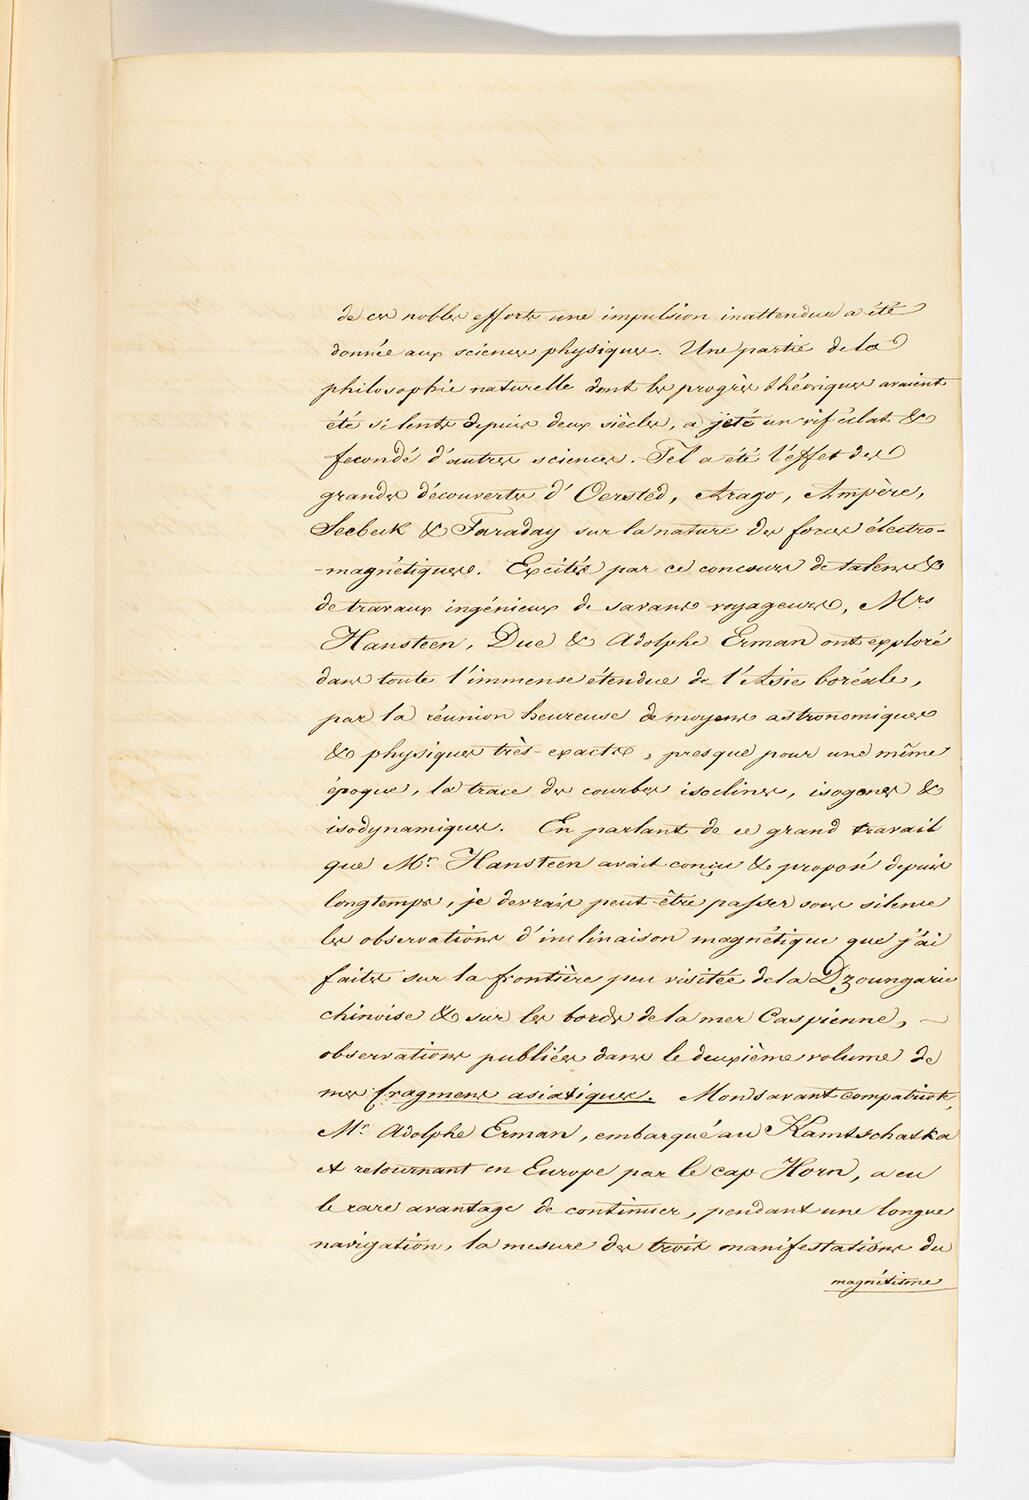 de ces nobles efforts une impulsion inattendue a été
donnée aux sciences physiques. Une partie de la
philosophie naturelle dont les progrès théoriques avaient
été si lents depuis deux siècles, a jeté un vif éclat &
fecondé d'autres sciences. Tel a été l'effet des
grandes découvertes d'Oersted, Arago, Ampère,
Seebeck & Faraday sur la nature des forces électro-
-magnétiques. Excités par ce concours de talens &
de travaux ingénieux de savans voyageurs, Mrs
Hansteen, Due & Adolphe Erman ont exploré
dans toute l'immense étendue de l'Asie boréale,
par la réunion heureuse de moyens astronomiques
& physiques très-exacts, presque pour une même
époque, la trace des courbes isoclines, isogones &
isodynamiques. En parlant de ce grand travail
que Mr. Hansteen avait conçu & proposé depuis
longtemps, je devrais peut-être passer sous silence
les observations d'inclinaison magnétique que j'ai
faites sur la frontière peu visitée de la Dzoungarie
chinoise & sur les bords de la mer Caspienne, —
observations publiées dans le deuxième volume de
mes fragmens asiatiques. Mond savant compatriote,
Mr. Adolphe Erman, embarqué au Kamtschatka
et retournant en Europe par le cap Horn, a eu
le rare avantage de continuer, pendant une longue
navigation, la mesure des trois manifestations du
magnétisme